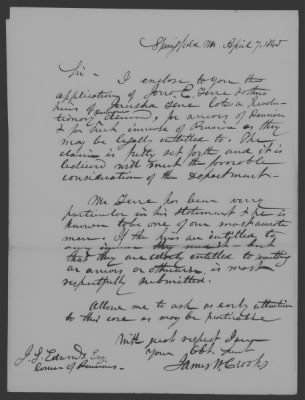 Springfield Ms. April 7, 1845
Sir - I enclose to you the
application of Jno. E. Terre & other
heirs of Jerusha Terre late a Revolu-
tionary claimant, for arrears of Pension
& for such increase of Pension as they
may be legally entitled to. The
claim is fully set forth and it is
believed will meet the favorable
consideration of the Department -
Mr Terre has been very
particular in his statement & he is
known to be one of our most
men. If the heirs are entitled to
but
that they are entitled to something
as arrears or otherwise is most
respectfully submitted.
Allow me to ask as early attention
to this case as may be practicable
With great respect I am
Your Obt. Servt
James W. Crooks
J. L. Edwards Esq
Comr of Pensions -